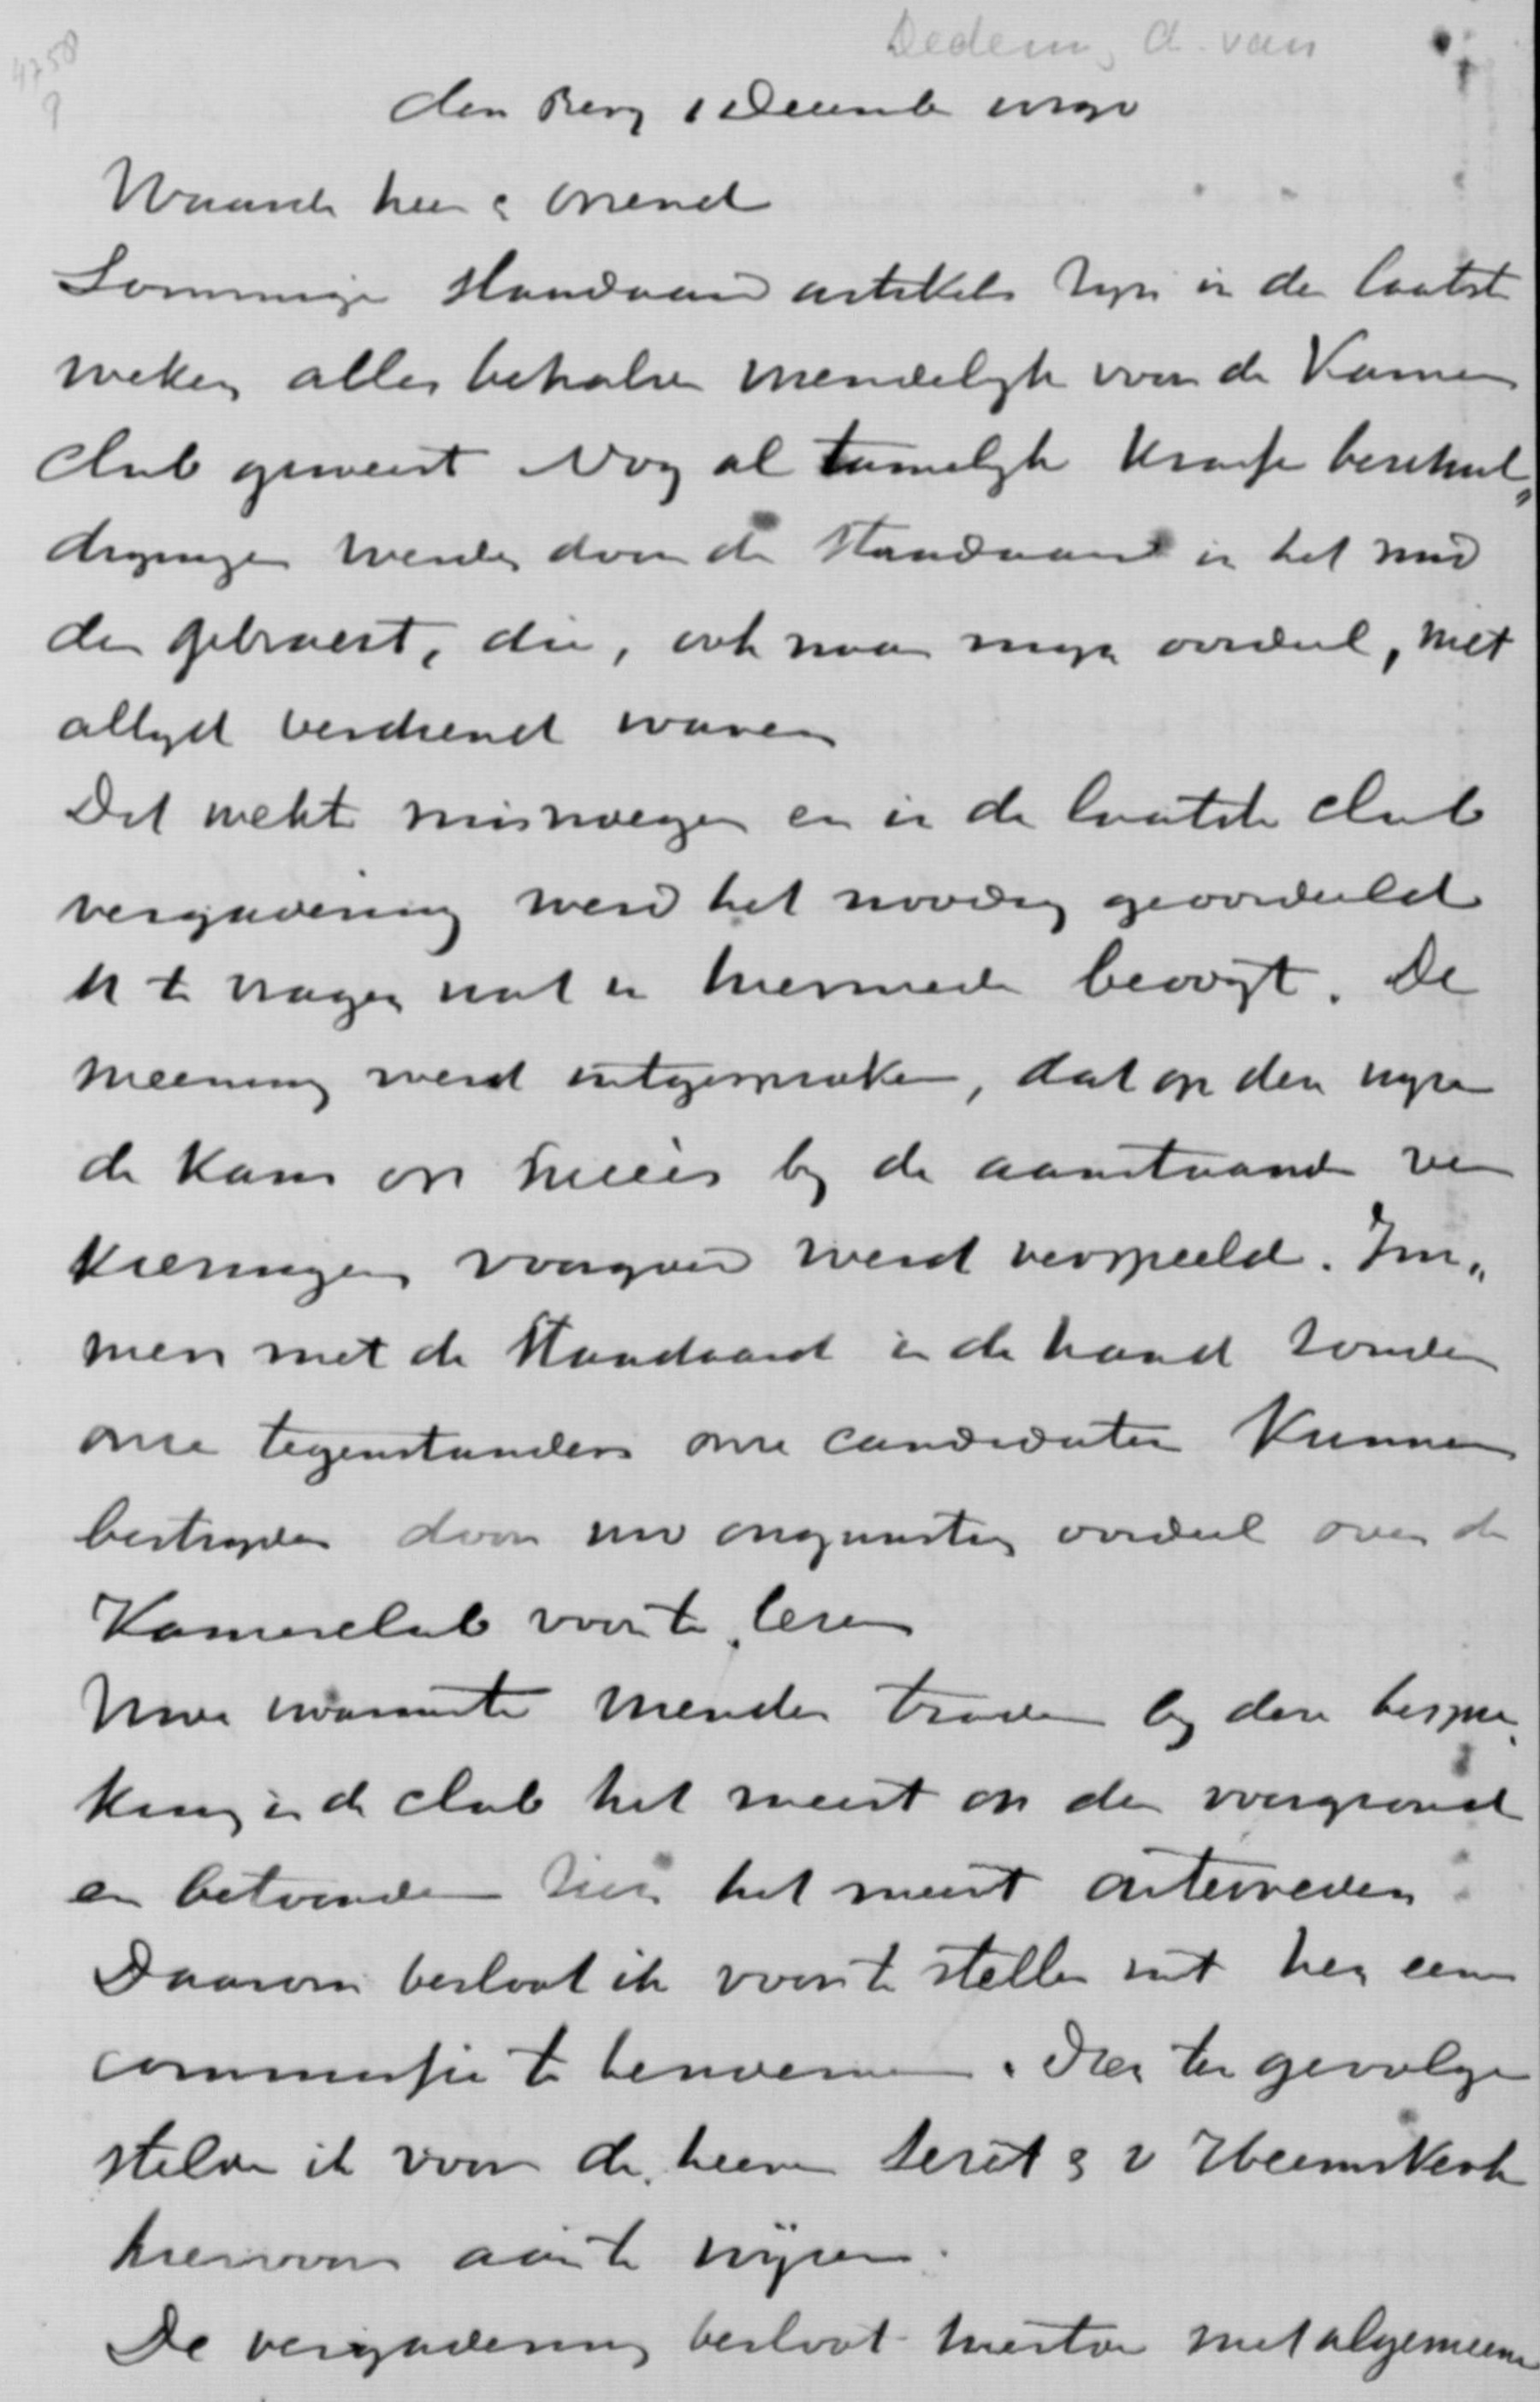 4758
Dedem, A. van
den Berg 1 Decemb
Waarde heer & vriend
Sommige Standaard artikels zyn in de laatste
weken alles behalve vriendelyk voor de Kamer
Club geweest Nog al tamelyk krasse beschul„
digingen werden door de Standaard in het mid
den gebracht, die, ook naar myn oordeel, niet
altyd verdiend waren
Dit wekt misnoegen en in de laatste club
vergadering werd het noodig geoordeeld
U te vragen wat U hiermede beoogt. De
meening werd uitgesproken, dat op deze wyze
de kans op succes by de aanstaande ver
kiezingen voorgoed werd verspeeld. Im„
mers met de Standaard in de hand zouden
onze tegenstanders onze candidaten kunnen
bestryden door uw ongunstig oordeel over de
Kamerclub voor te lezen
Uwe warmste vrienden traden by deze bespre„
king in de club het meest op den voorgrond
en betoonden zich het meest ontevreden
Daarom besloot ik voor te stellen uit hen eene
commissie te benoemen. Dien ten gevolge
stelde ik voor de heeren Seret & v Heemskerk
hiervoor aan te wyzen.
De vergadering besloot hiertoe met algemeene